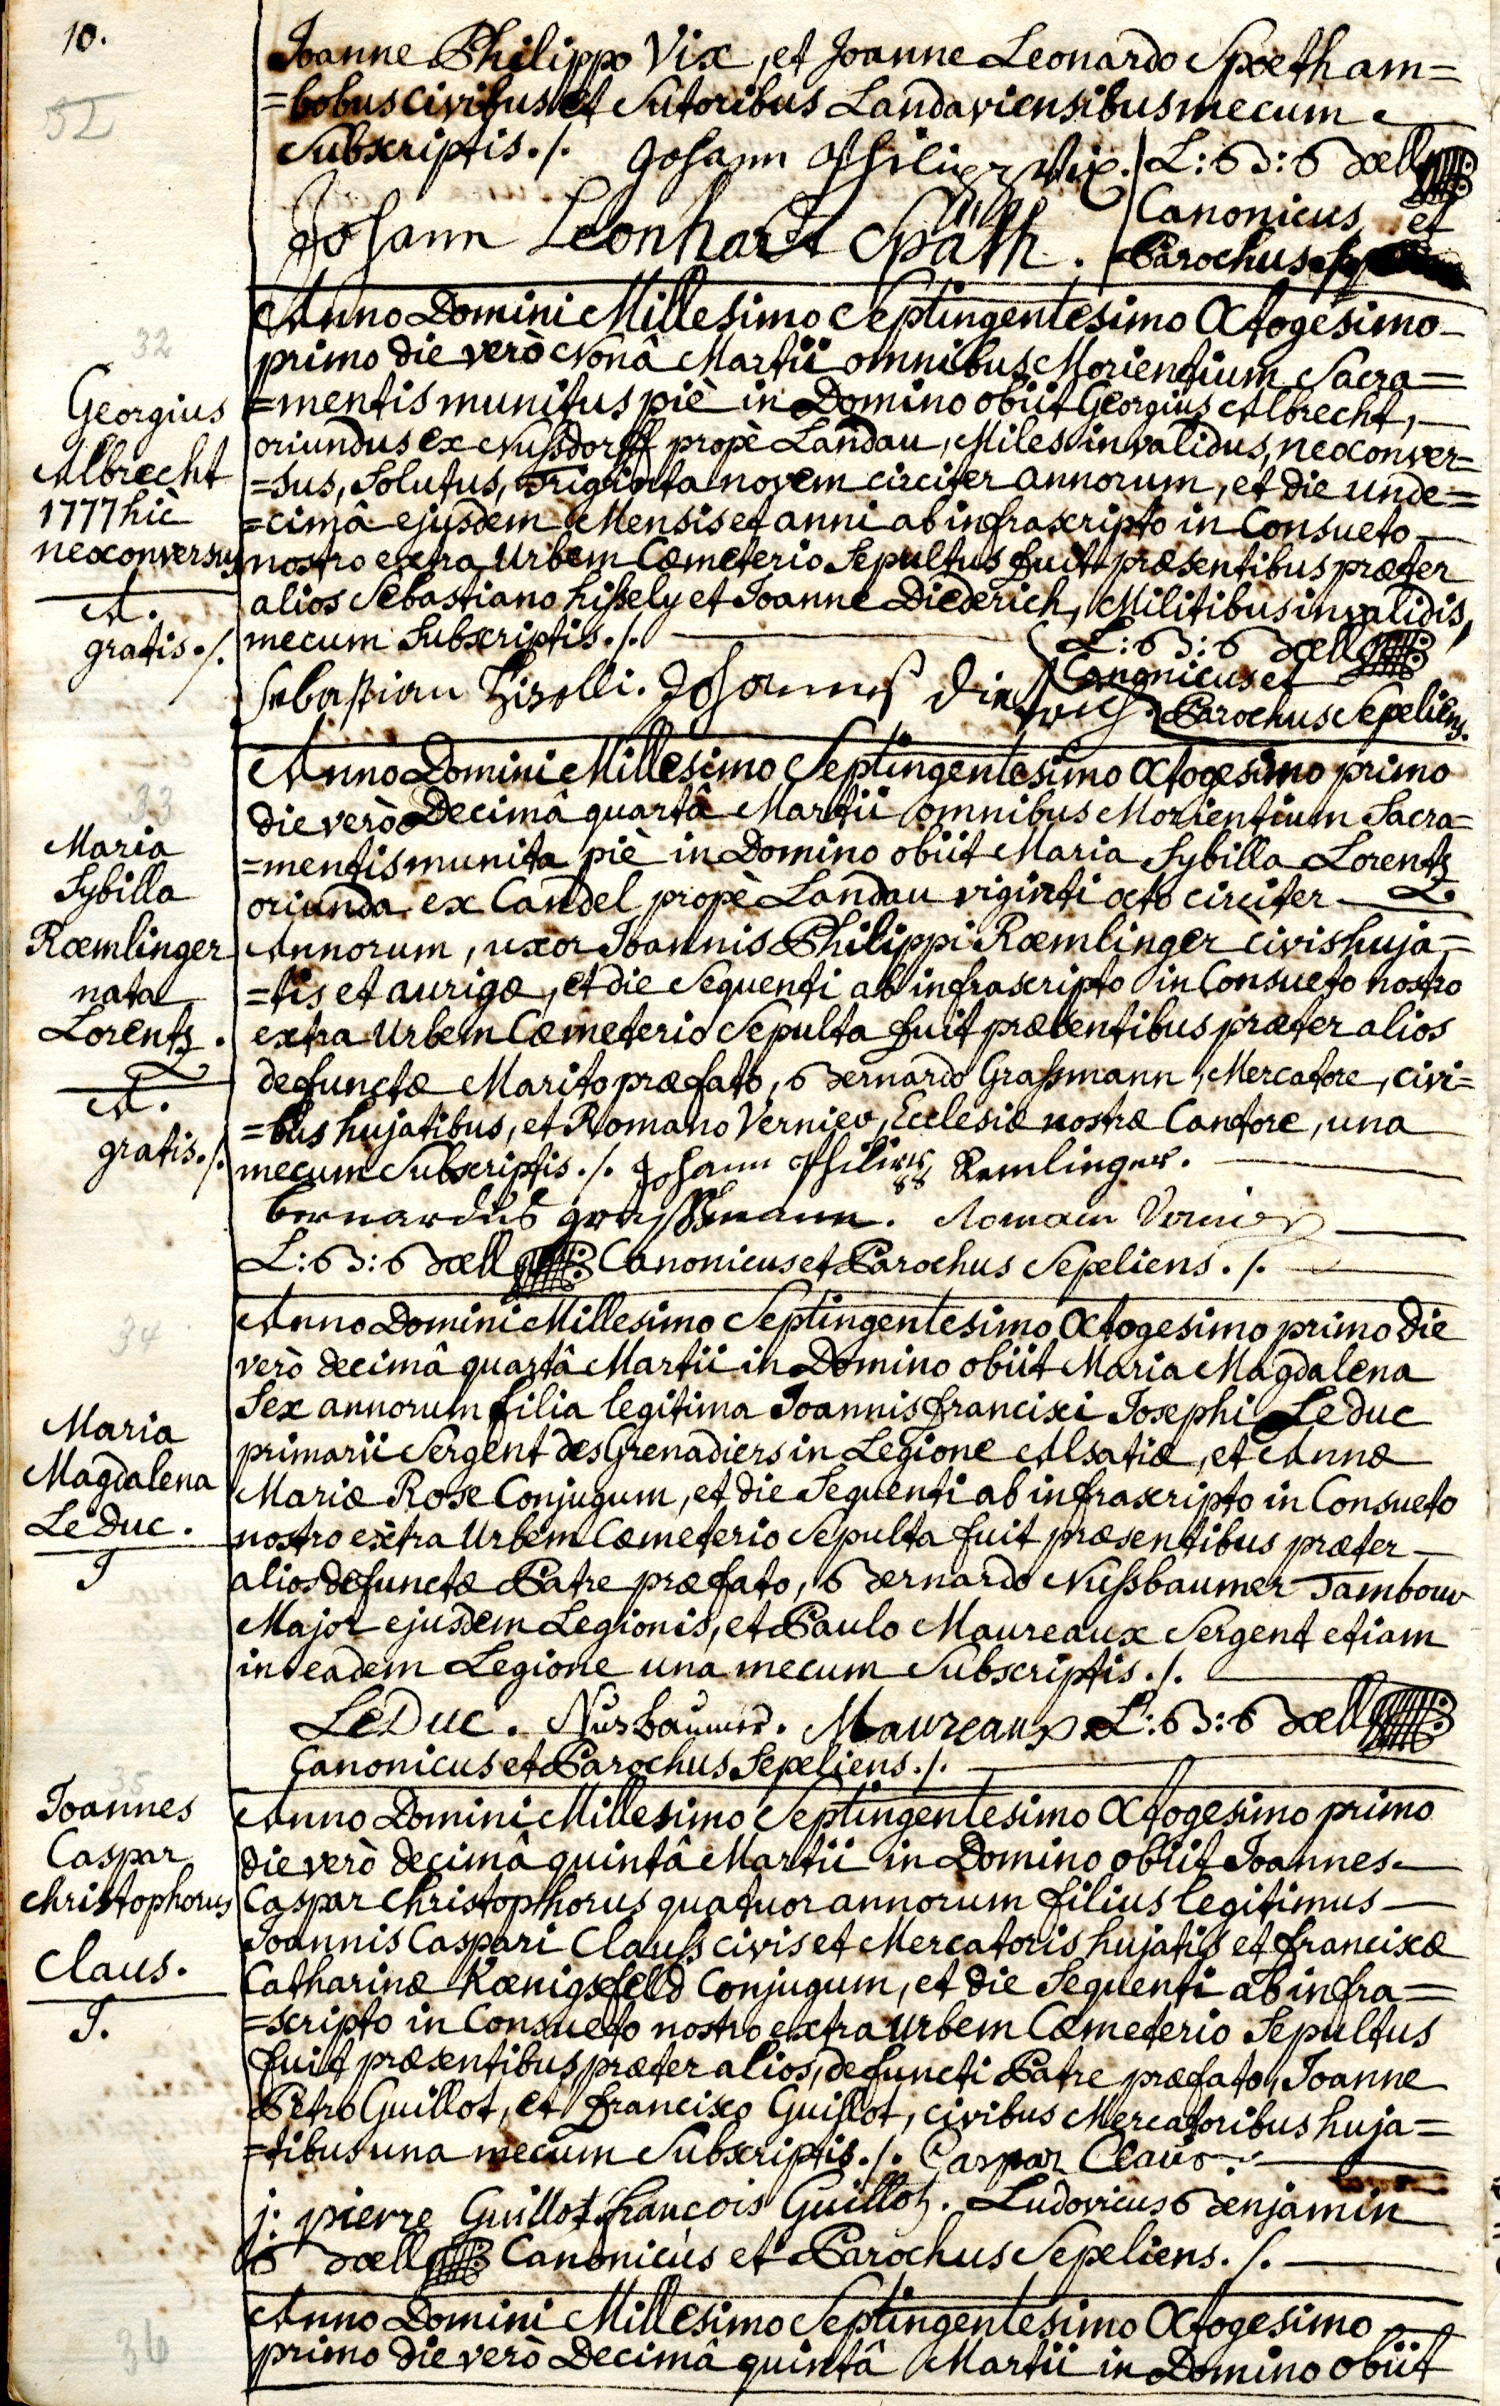 10.
52
Joanne Philippo Vix, et Joanne Leonardo Spœth am=
=bobus civibus et Sutoribus Landaviensibus mecum
Subscriptis ./. Johann Philipp Vix. L: B: Bœll
Johann Leonhardt Späth. Canonicus et
Parochus
32
Anno Domini Millesimo Septingentesimo Octogesimo
primo die verò Nonâ Martii omnibus Morientium Sacra=
=mentis munitus piè in Domino obiit Georgius Albrecht,
oriundus ex Nussdorff propè Landau, Miles invalidus, neoconver=
=sus, Solutus, Triginta novem circiter annorum, et die unde=
=cimâ ejusdem Mensis et anni ab infrascripto in Consueto
nostro extra Urbem Cœmeterio Sepultus fuit præsentibus præter
alios Sebastiano hissely et Joanne Diederich, Militibus invalidis,
mecum Subscriptis ./.
Georgius
Albrecht
1777 hic
neoconversus
A.
gratis ./.
L: B: Bœll
Canonicus et
Parochus Sepeliens.
Sebastian Hiselli. Johannes Dietrich.
33
Anno Domini Millesimo Septingentesimo Octogesimo primo
die verò Decimâ quartâ Martii omnibus Morientium Sacra=
=mentis munita piè in Domino obiit Maria Sybilla Lorentz
oriunda ex Candel propè Landau viginti octo circiter
Annorum, uxor Joannis Philippi Rœmlinger civis huja=
=tis et aurigæ, et die Sequenti ab infrascripto in Consueto nostro
extra Urbem Cœmeterio Sepulta fuit præsentibus præter alios
defunctæ Marito præfato, Bernardo Grassmann, Mercatore, civi=
=bus hujatibus, et Romano Vernier, Ecclesiæ nostræ Cantore, una
mecum Subscriptis ./. Johann Philipp Remlinger.
Maria
Sybilla
Rœmlinger
nata
Lorentz.
A.
gratis ./.
Bernardus grassmann. Romain Vernier
L: B: Bœll Canonicus et Parochus Sepeliens ./.
34
Anno Domini Millesimo Septingentesimo Octogesimo primo die
verò decimâ quartâ Martii in Domino obiit Maria Magdalena
Sex annorum filia legitima Joannis Francisci Josephi Le duc
primarii Sergent des Grenadiers in Legione Alsatiæ, et Annæ
Mariæ Rose Conjugum, et die Sequenti ab infrascripto in Consueto
nostro extra Urbem Cœmeterio Sepulta fuit præsentibus præter
alios defunctæ Patre præfato, Bernardo Nussbaumer Tambour
Major ejusdem Legionis, et Paulo Maureaux Sergent etiam
in eadem Legione una mecum Subscriptis ./.
Maria
Magdalena
Le Duc.
J
LeDuc. Nusbaumer. Maureaux L: B: Bœll
Canonicus et Parochus Sepeliens ./.
35
Anno Domini Millesimo Septingentesimo Octogesimo primo
die verò decimâ quintâ Martii in Domino obiit Joannes
Caspar Christophorus quatuor annorum filius legitimus
Joannis Caspari Clauss civis et Mercatoris hujatis et Franciscæ
Catharinæ Kœnigsfeld Conjugum, et die Sequenti ab infra=
=scripto in Consueto nostro extra Urbem Cœmeterio Sepultus
fuit præsentibus præter alios, defuncti Patre præfato, Joanne
Petro Guillot, et Francisco Guillot, civibus Mercatoribus huja=
=tibus una mecum Subscriptis ./. Caspar Claus.
Joannes
Caspar
Christophorus
Claus.
J.
j: pierre Guillot. francois Guillot. Ludovicus Benjamin
Bœll Canonicus et Parochus Sepeliens ./.
36
Anno Domini Millesimo Septingentesimo Octogesimo
primo die verò Decimâ quintâ Martii in Domino obiit